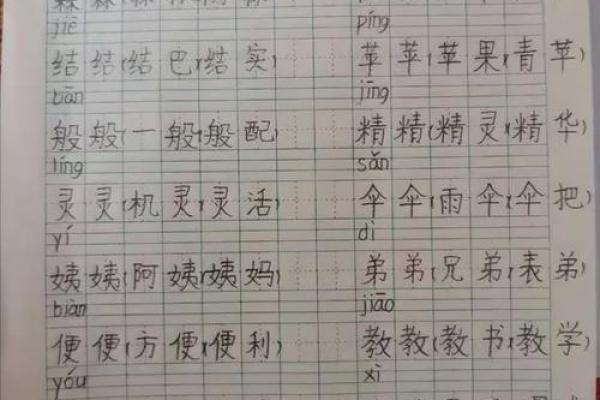 jiē píng
结 结(结 巴)(结 实) 苹 苹(苹 果)(青 苹)
bān jīng
般 般(一 般)(般 配) 精 精(精 灵)(精 华)
líng sǎn
灵 灵(机 灵)(灵 活) 伞 伞(雨 伞)(伞 把)
yí dì
姨 姨(阿 姨)(姨 妈) 弟 弟(兄 弟)(表 弟)
biàn jiāo
便 便(方 便)(便 利) 教 教(教 书)(教 学)
yóu xì